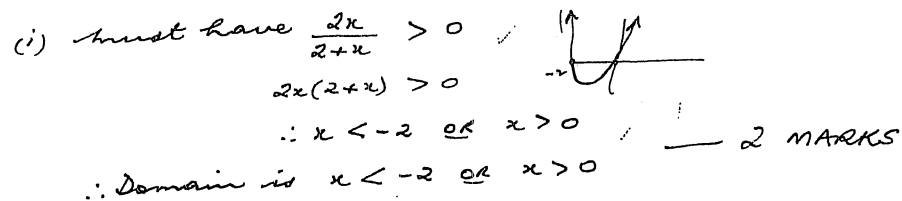 (i) must have 2x/(2+x) > 0
-2
2x(2+x) > 0
∴ x < -2 OR x > 0 — 2 MARKS
∴ Domain is x < -2 OR x > 0